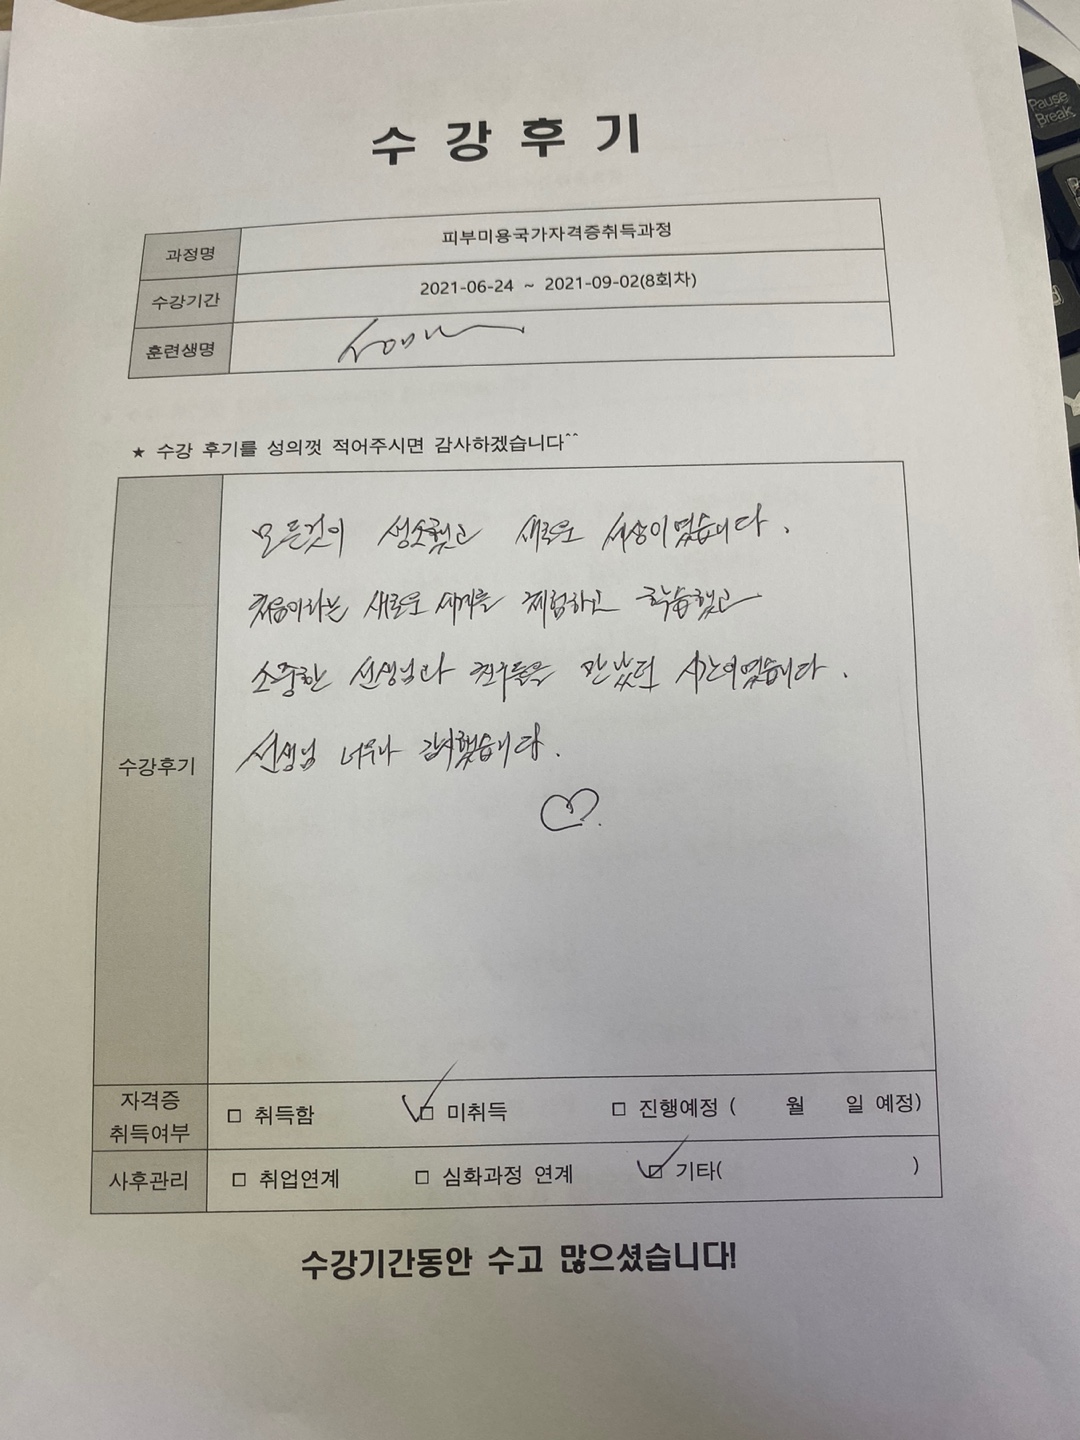 수 강 후 기
과정명 피부미용국가자격증취득과정
수강기간 2021-06-24 ~ 2021-09-02(8회차)
훈련생명
★ 수강 후기를 성의껏 적어주시면 감사하겠습니다^^
모든것이 생소했고 새로운 세상이였습니다.
처음이라는 새로운 세계를 체험하고 학습했고
소중한 선생님과 친구들을 만났던 시간이였습니다.
수강후기
선생님 너무나 감사했습니다.
자격증 취득여부 □ 취득함 □ 미취득 □ 진행예정 ( 월 일 예정)
사후관리 □ 취업연계 □ 심화과정 연계 □ 기타( )
수강기간동안 수고 많으셨습니다!
Pause
Break